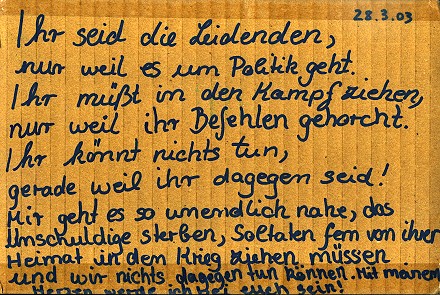 28.3.03
Ihr seid die Leidenden,
nur weil es um Politik geht.
Ihr müßt in den Kampf ziehen,
nur weil ihr Befehlen gehorcht.
Ihr könnt nichts tun,
gerade weil ihr dagegen seid!
Mir geht es so unendlich nahe, das
Unschuldige sterben, Soltaten fern von ihrer
Heimat in dem Krieg ziehen müssen
und wir nichts dagegen tun können. Mit meinem
Herzen werde ich bei euch sein!